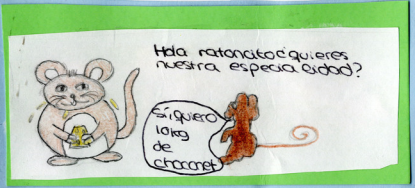 Hola ratoncito¿quieres
nuestra especialidad?
Sí, quiero
10kg
de
choconet